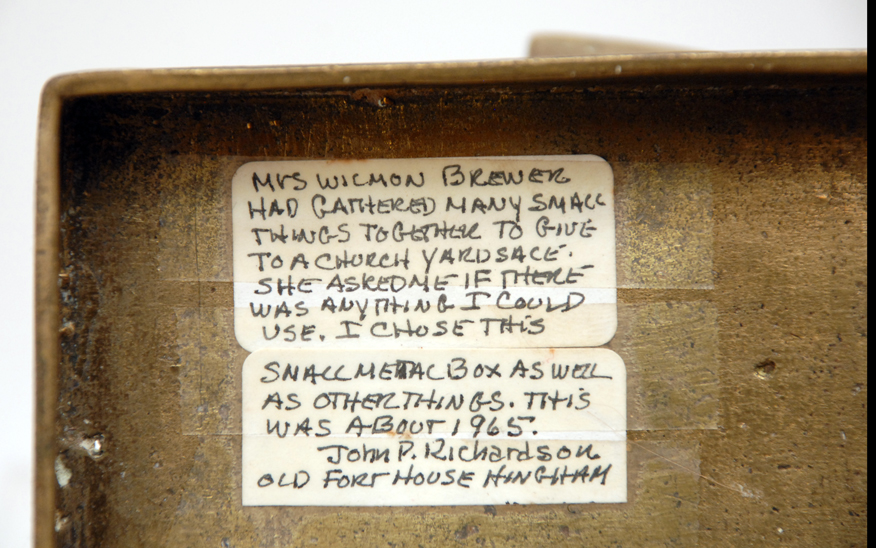 Mrs WILMON BREWER
HAD GATHERED MANY SMALL
THINGS TOGETHER TO GIVE
TO A CHURCH YARDSALE.
SHE ASKED ME IF THERE
WAS ANYTHING I COULD
USE. I CHOSE THIS
SMALL METAL BOX AS WELL
AS OTHER THINGS. THIS
WAS ABOUT 1965.
John P. Richardson
OLD FORT HOUSE HINGHAM